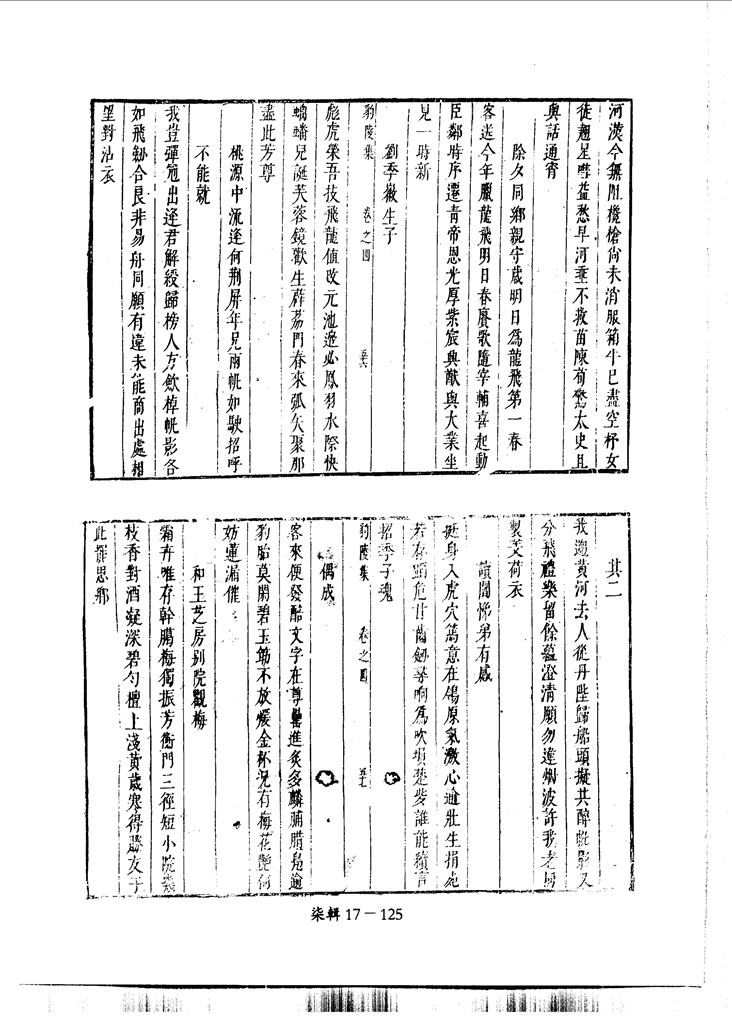 河漢今無阻欃槍尚未消服箱牛已盡空杼女
徒翹星聚益愁旱河垂不救苗陳荀驚太史且
與話通宵
除夕同鄉親守歲明日為龍飛第一春
客送今年臘龍飛明日春賡歌隨宰輔喜起動
臣鄰時序遷青帝恩光厚紫宸輿猷與大業坐
見一時新
劉季徵生子
豹陵集 卷之四 五六
彪虎榮吾技飛龍值改元池邊必鳳羽水際快
蠙兒誕芙蓉鏡歡生薜荔門春來弧矢聚那
盡此芳尊
桃源中流逢何荆屏年兄兩帆如駛招呼
不能就
我豈彈冠出逢君解綬歸榜人方飲棹帆影各
如飛劒合良非易舟同願有違未能商出處相
望對沾衣
其二
我遡黃河去人從丹陛歸船頭擬共醉帆影又
分飛禮樂留餘蘊澄清願勿違烟波許我老另
製芰荷衣
讀闇悌弟有感
挺身入虎穴篤意在鴒原氣激心逾壯生捐死
若存蹈危甘齒劒尋响為吹塤楚些誰能續言
招季子魂
豹陵集 卷之四 五七
偶成
客來便發醅文字在尊罍進炙多麟脯腊是逾
豹胎莫閑碧玉勸不放煖金杯況有梅花艷何
妨蓮漏催
和王芝房别院觀梅
霜卉唯存幹臈梅獨振芳衡門三徑短小院
枝香對酒凝深碧勺檀上淺黃歲寒得勝友于
此罷思鄉
柒輯 17－125